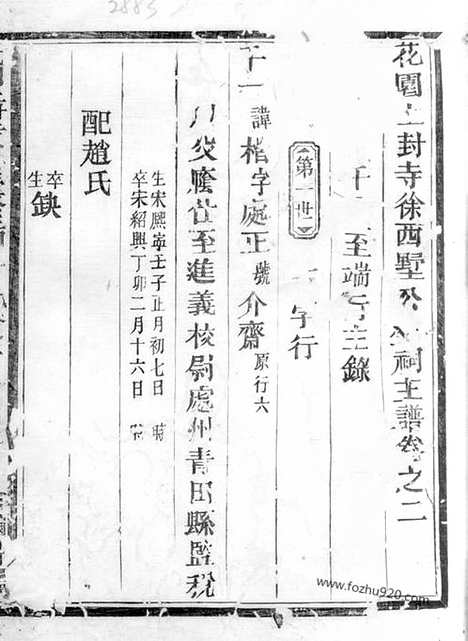 2883
花園上封寺徐西墅公祠主譜卷之二
千一至端行主錄
第一世
字行
千一諱楷字處正號介齋原行六
以父蔭仕至進義校尉處州青田縣監税
生宋熙寧壬子正月初七日時
卒宋紹興丁卯二月十六日時
配趙氏
生卒缺
www.fozhu920.com